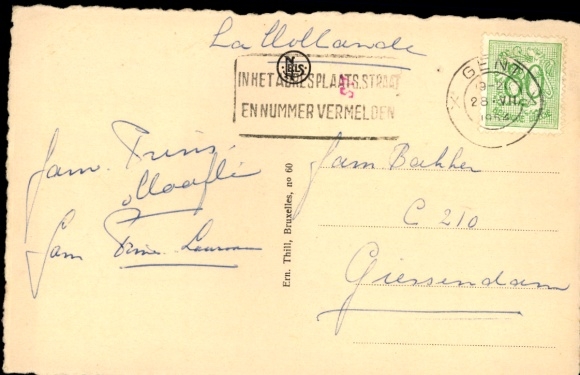 La Hollande
NELS
IN HET ADRES PLAATS, STRAAT
EN NUMMER VERMELDEN
GENT
19-20
28 VII
1954
80
Fam. Prins
Fam
Ern. Thill, Bruxelles, nº 60
Fam Bakker
C 210
Giessendam